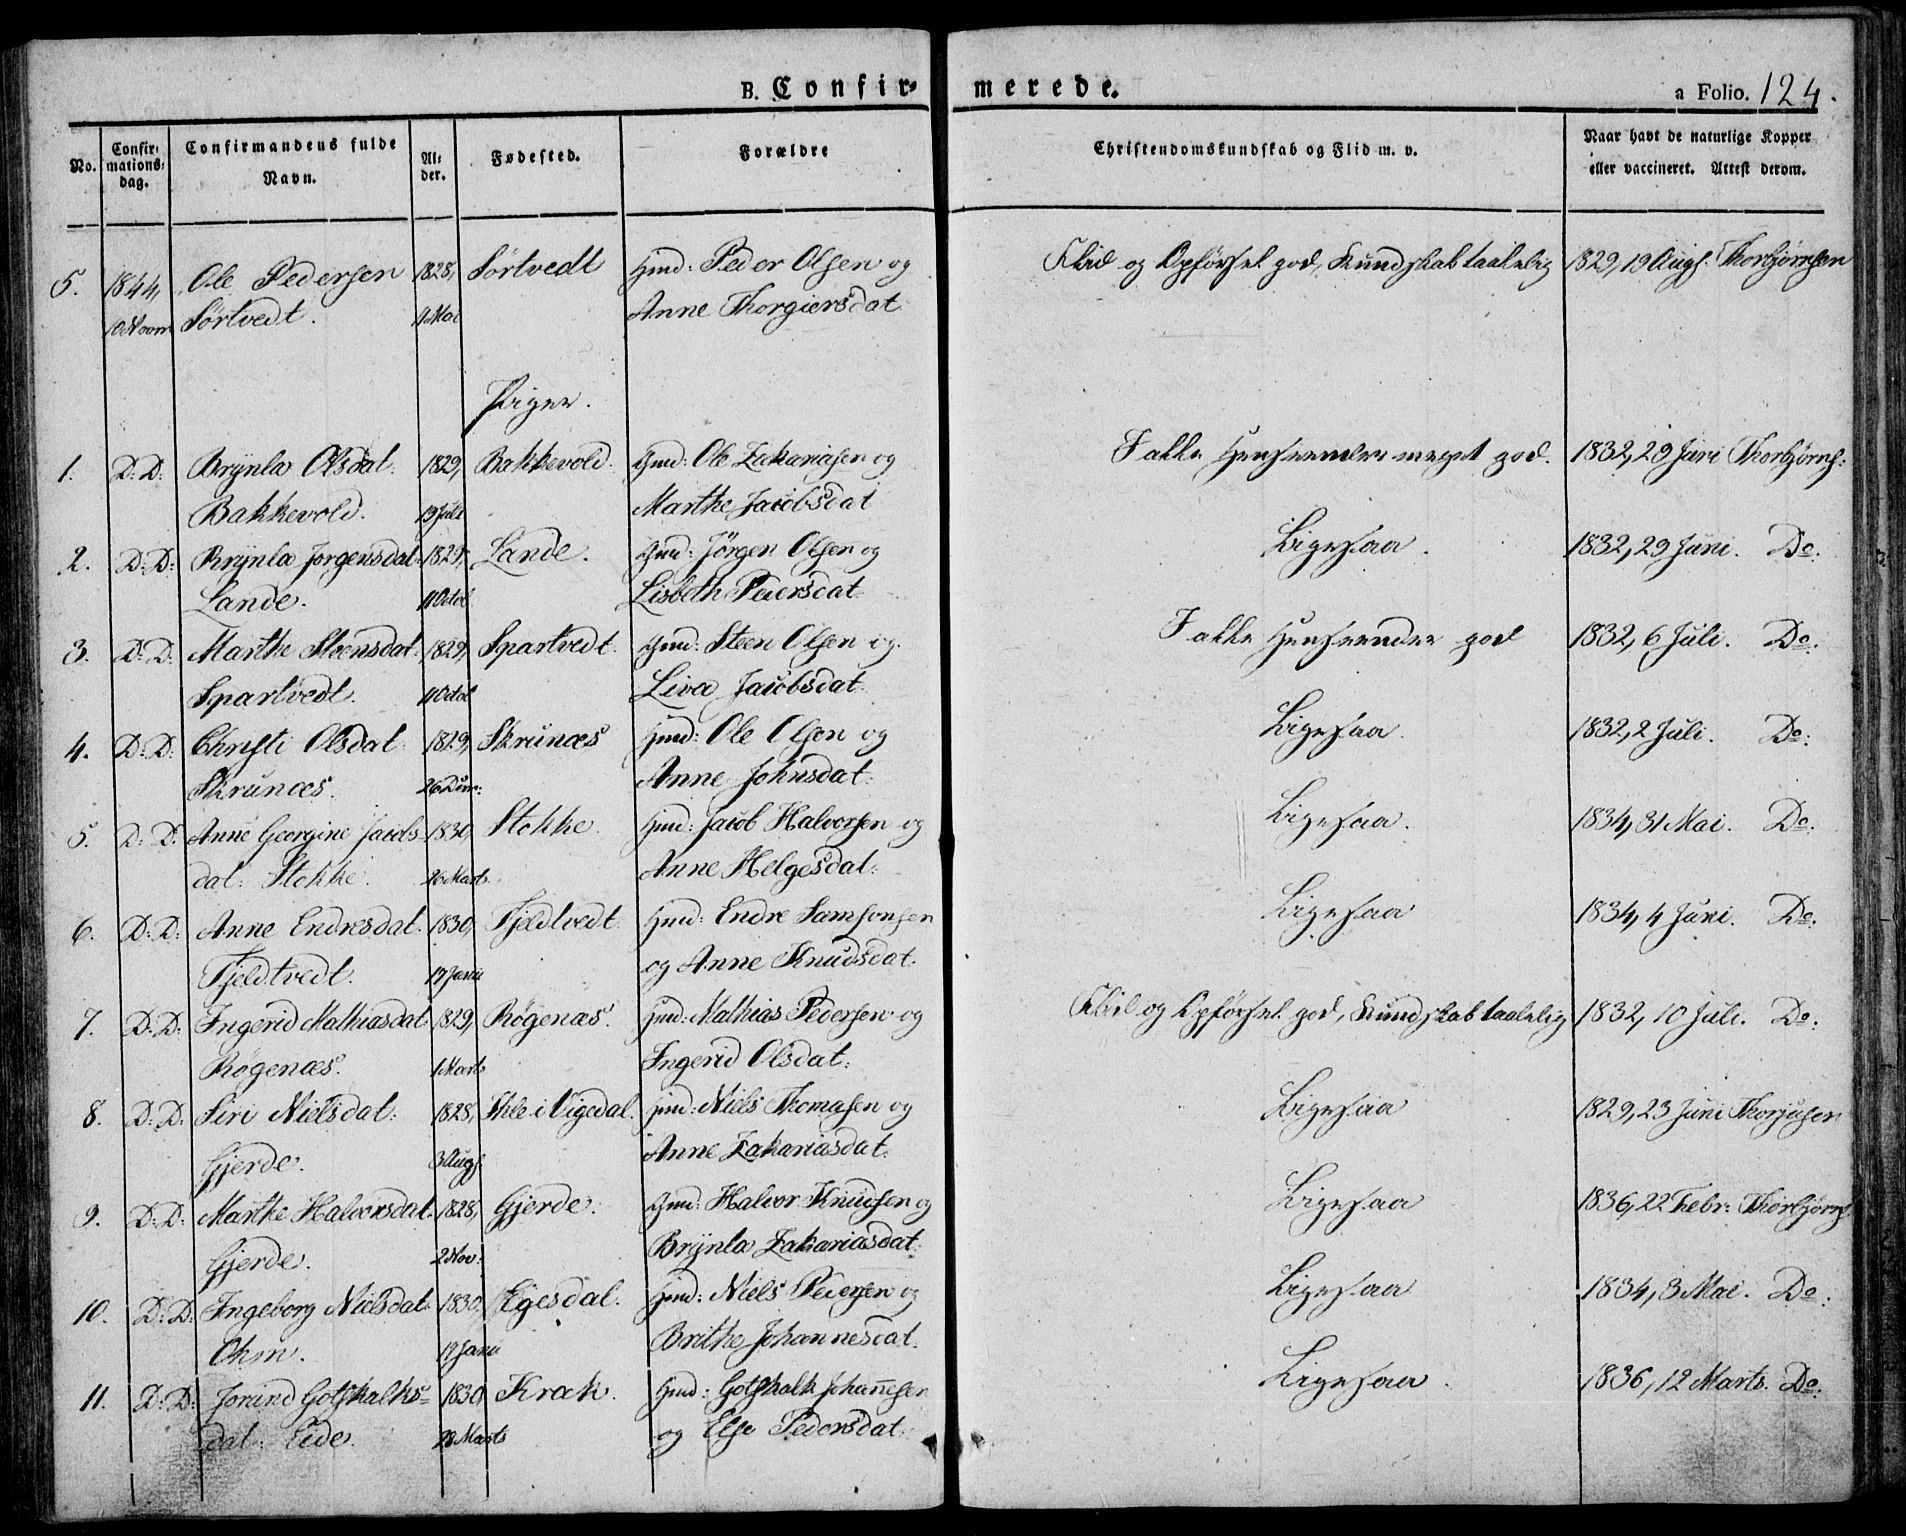 B. Confir- merede. a Folio. 124.
No. Confir- mations- dag. Confirmandens fulde Navn. Al- der. Fødested. Forældre Christendomskundskab og Flid m. v. Naar havt de naturlige Kopper eller vaccineret. Attest derom.
5. 1844, Ole Pedersen 1828, Sørtvedt Gmd: Peder Olsen og Flid og Opførsel god, Kundskab taalelig 1829, 19 Augs. Thorbjørnsen
10 Novm Sørtvedt. Anne Thorgiersdat
Piger.
1. D: D: Brynla Olsdat: 1829, Bakkevold. Gmd: Ole Zakariasen og I alle Henseender meget god. 1832, 29 Juni Thorbjørns:
Bakkevold. 19 Juli Marthe Jacobsdat
2. D: D: Brynla Jørgensdat: 1829, Lande. Gmd: Jørgen Olsen og Ligesaa. 1832, 29 Juni. Do.
Lande. 11 Octob Lisbeth Pedersdat:
3. D: D: Marthe Steensdat: 1829, Spartvedt. Gmd: Steen Olsen og I alle Henseender god 1832, 6 Juli. Do:
Spartvedt. 11 Octob Liva Jacobsdat:
4. D: D: Christi Olsdat: 1829, Skrunæs Gmd: Ole Olsen og Ligesaa. 1832, 2 Juli. Do:
Skrunæs. Anne Johnsdat:
5. D: D: Anne Georgine Jacobs- 1830, Stokke. Gmd: Jacob Halvorsen og Ligesaa. 1834, 31 Mai. Do:
dat: Stokke. 26 Marts Anne Helgesdat:
6. D: D: Anne Endresdat: 1830, Tjeldtvedt. Gmd: Endre Samsonsen Ligesaa 1834, 4 Juni. Do:
Tjeldtvedt. 17 Janu og Anne Knudsdat:
7. D: D: Ingerid Mathiasdat 1829, Røgenæs. Gmd: Mathias Pedersen og Flid og Opførsel god, Kundskab taalelig 1832, 10 Juli. Do:
Røgenæs. 1 Marts Ingerid Olsdat:
8. D: D: Siri Nielsdat: 1828, i Vigedal. Gmd: Niels Thomasen og Ligesaa 1829, 23 Juni Thorjusen
Gjerde. 3 Augs Anne Zakariasdat:
9. D: D: Marthe Halvorsdat. 1828, Gjerde. Gmd: Halvor Knudsen og Ligesaa 1836, 22 Febr: Thorbjørns.
Gjerde. 2 Nov: Brynla Zakariasdat:
10. D: D: Ingeborg Nielsdat: 1830, Egesdal. Gmd: Niels Pedersen og Ligesaa 1834, 3 Mai. Do:
17 Janu Brithe Johannesdat:
11. D: D: Jorund Gotskalks- 1830, Krack. Gmd: Gotskalk Johannesen Ligesaa. 1836, 12 Marts. Do:
dat: Eide. 28 Marts og Else Pedersdat: